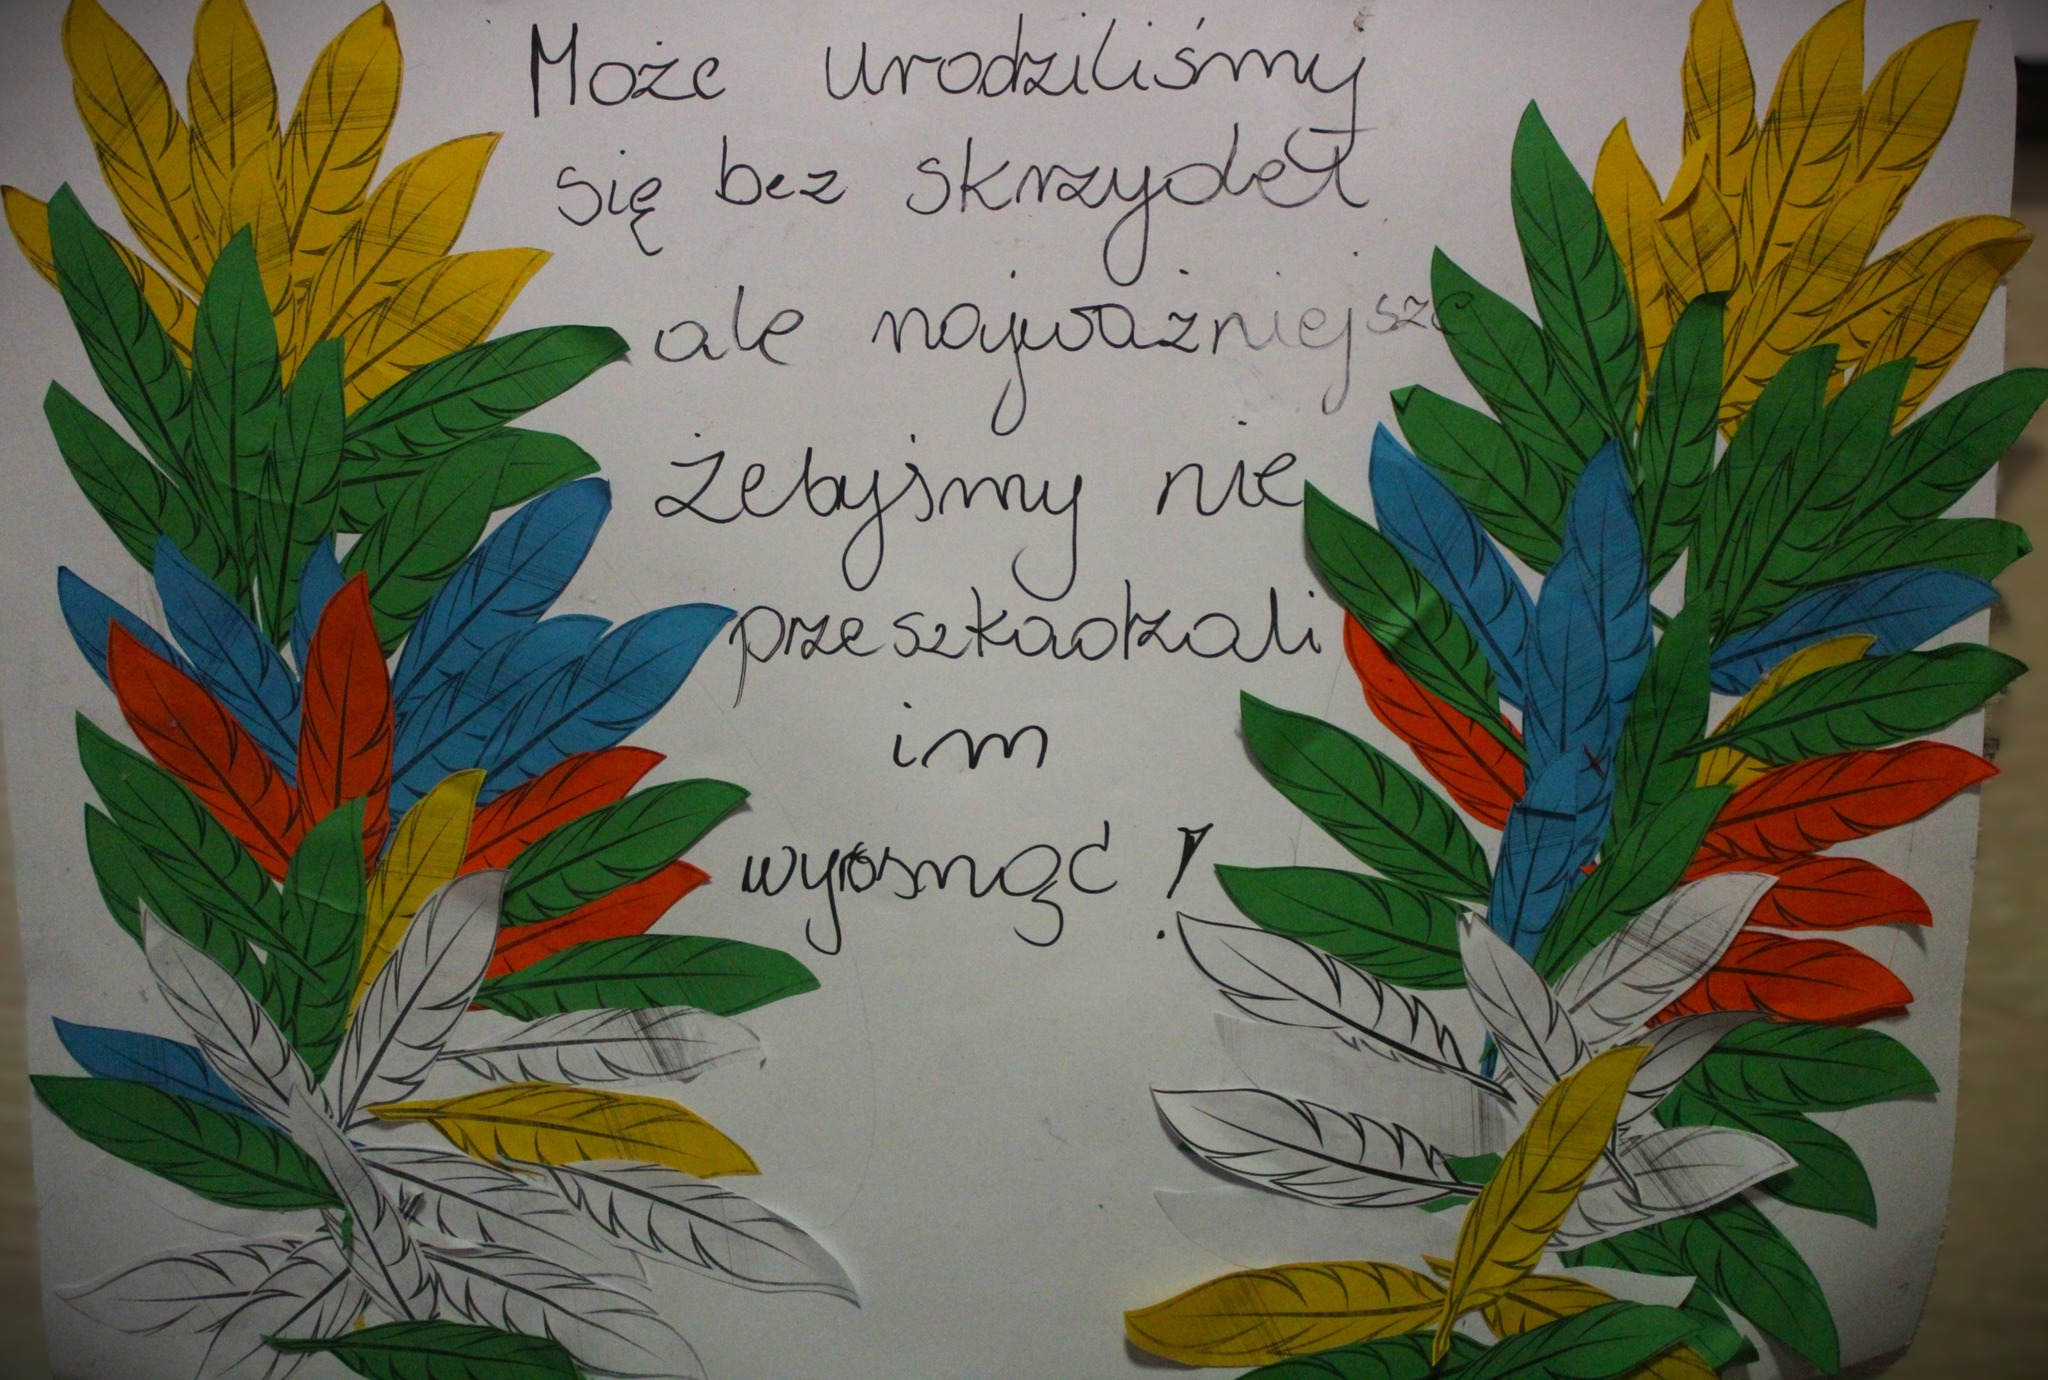 Może urodziliśmy
się bez skrzydeł
ale najważniejsze
żebyśmy nie
przeszkadzali
im
wyrosnąć!